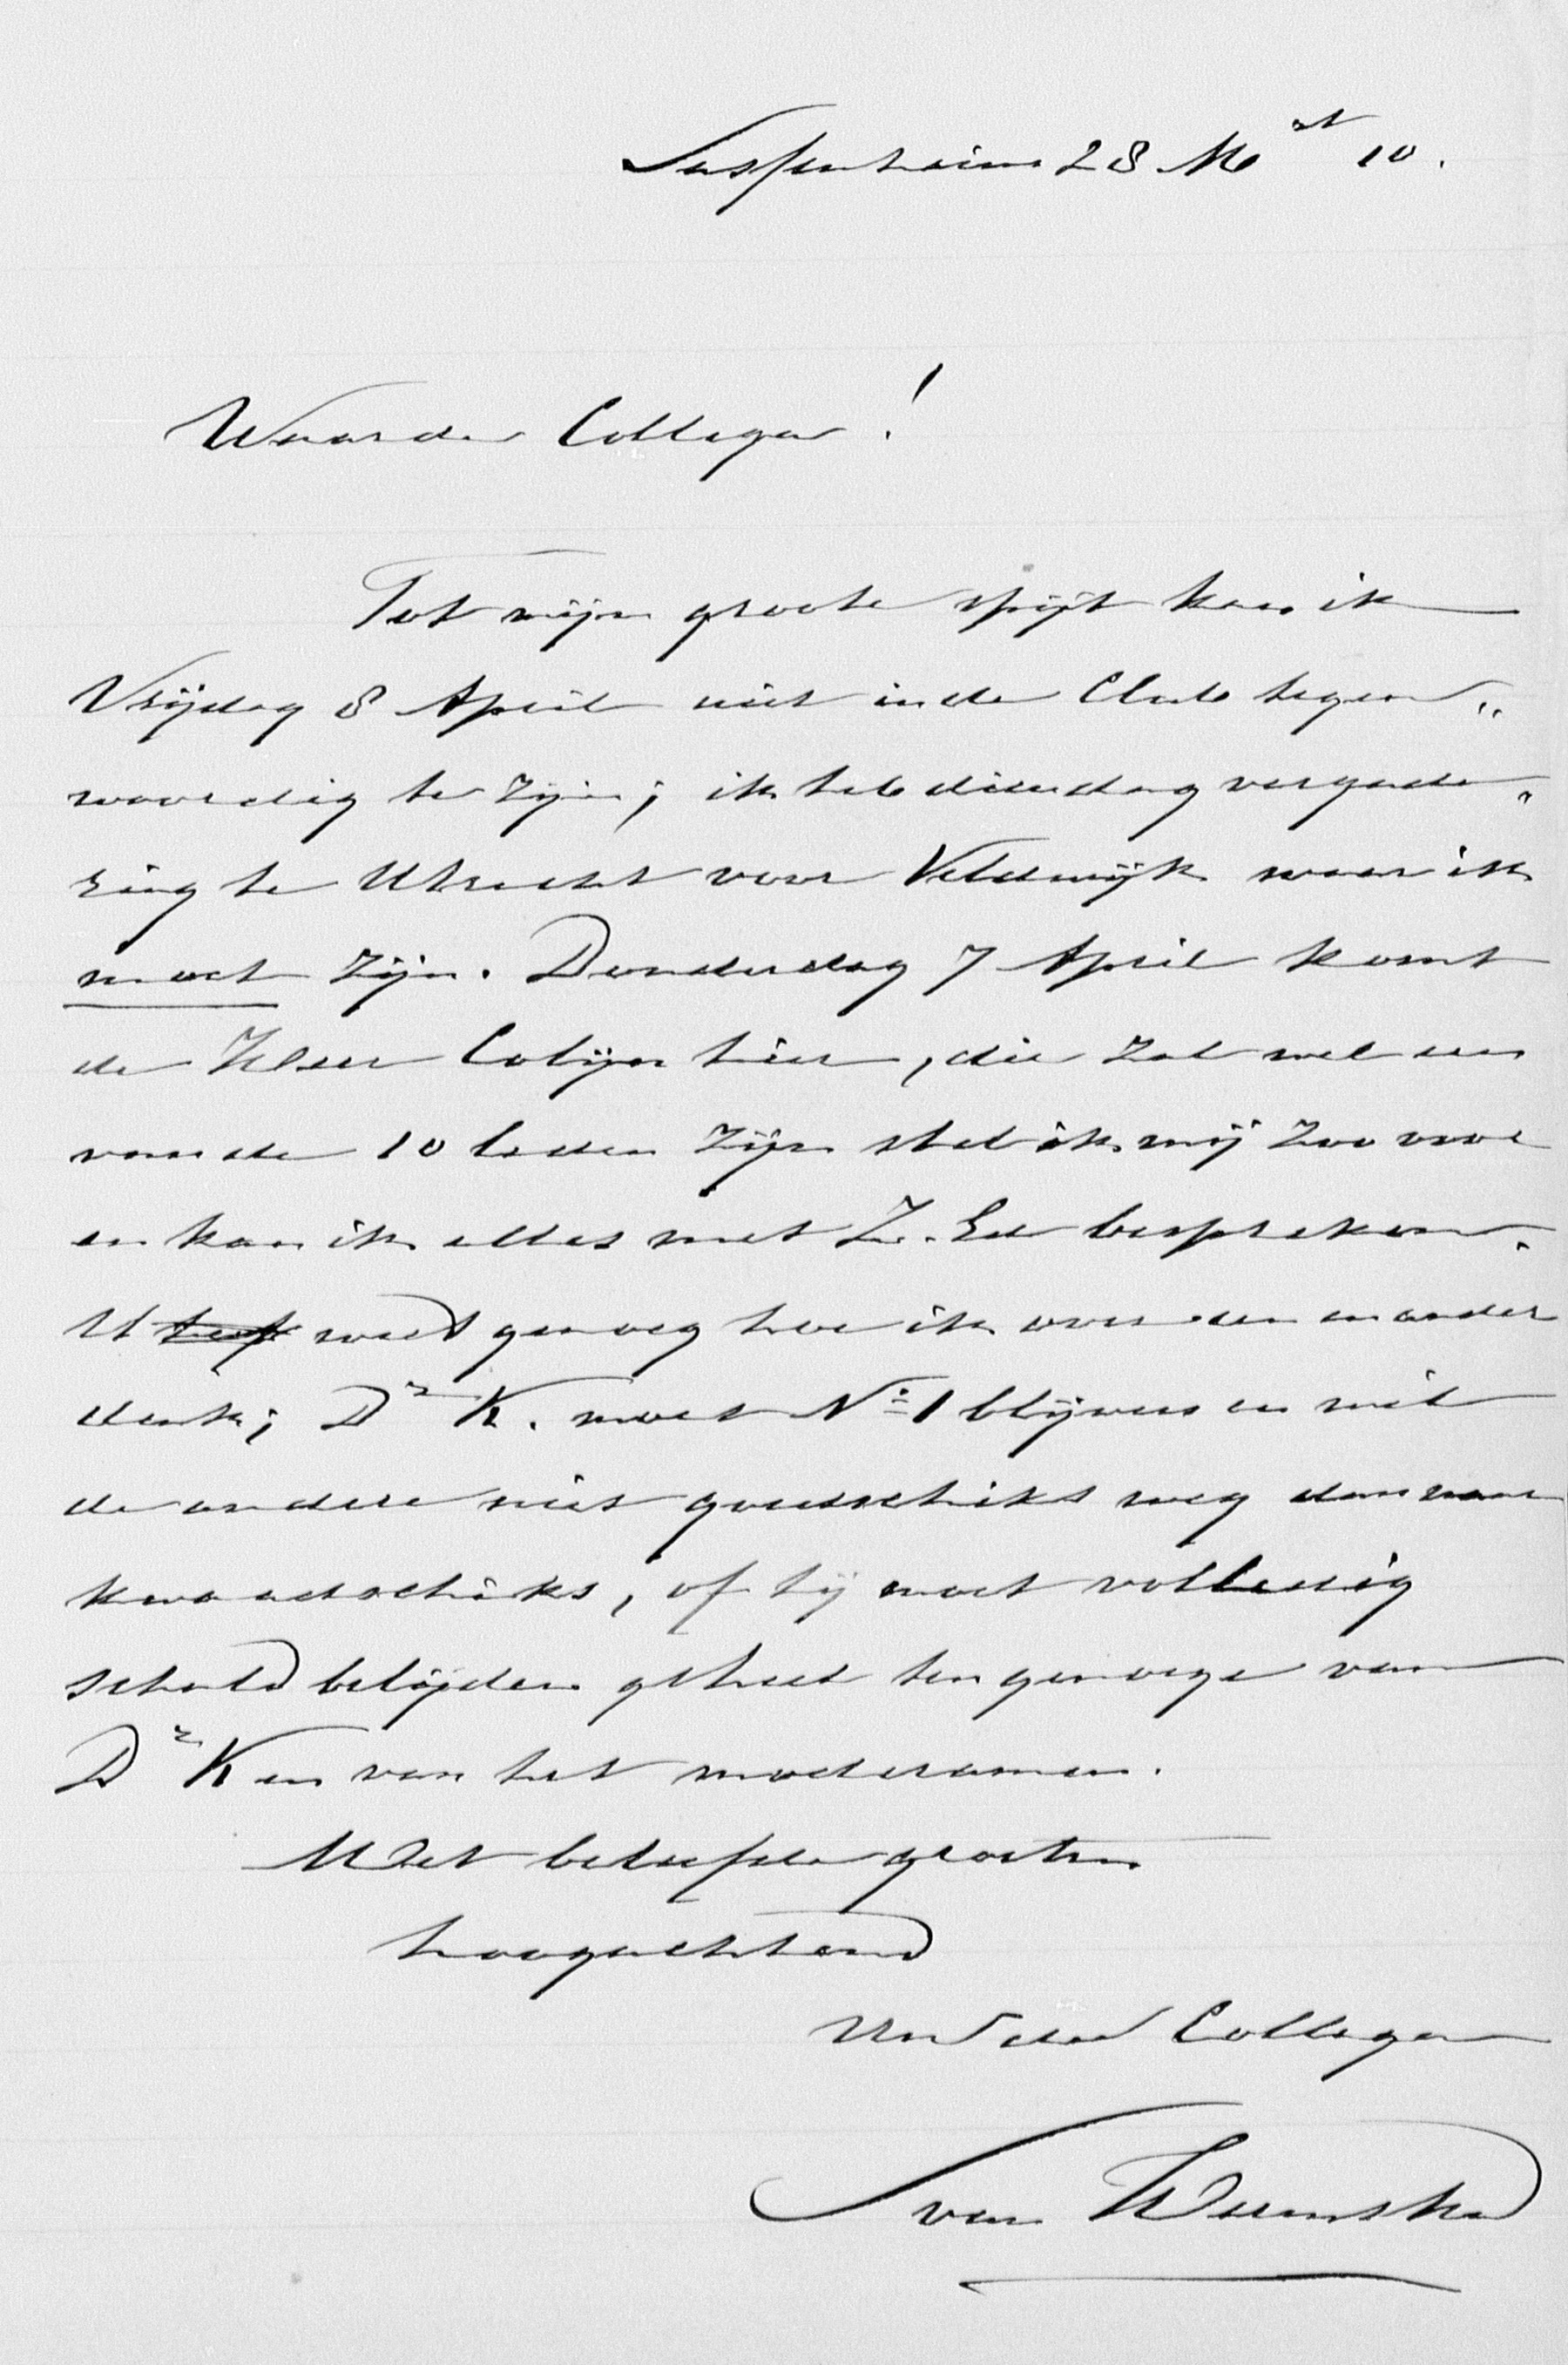 Sassenheim 28 Mrt 10.
Waarde Collega!
Tot mijn groote spijt kan ik
Vrijdag 8 April niet in de Club tegen„
woordig te zijn; ik heb dien dag vergade„
ring te Utrecht voor Veldwijk waar ik
moet zijn. Donderdag 7 April komt
de Heer Colijn hier, die zal wel een
van de 10 leden zijn stel ik mij zoo voor
en kan ik alles met Z. Ed bespreken.
U weet genoeg hoe ik over een en ander
denk; Dr K. moet No 1 blijven en wil
de andere niet goedschiks weg dan maar
kwaadschiks, of hij moet volledig
schuld belijden geheel ten genoege van
Dr K en van het moderamen.
Met beleefde groeten
hoogachtend
Uw dw Collega
van Heemstra